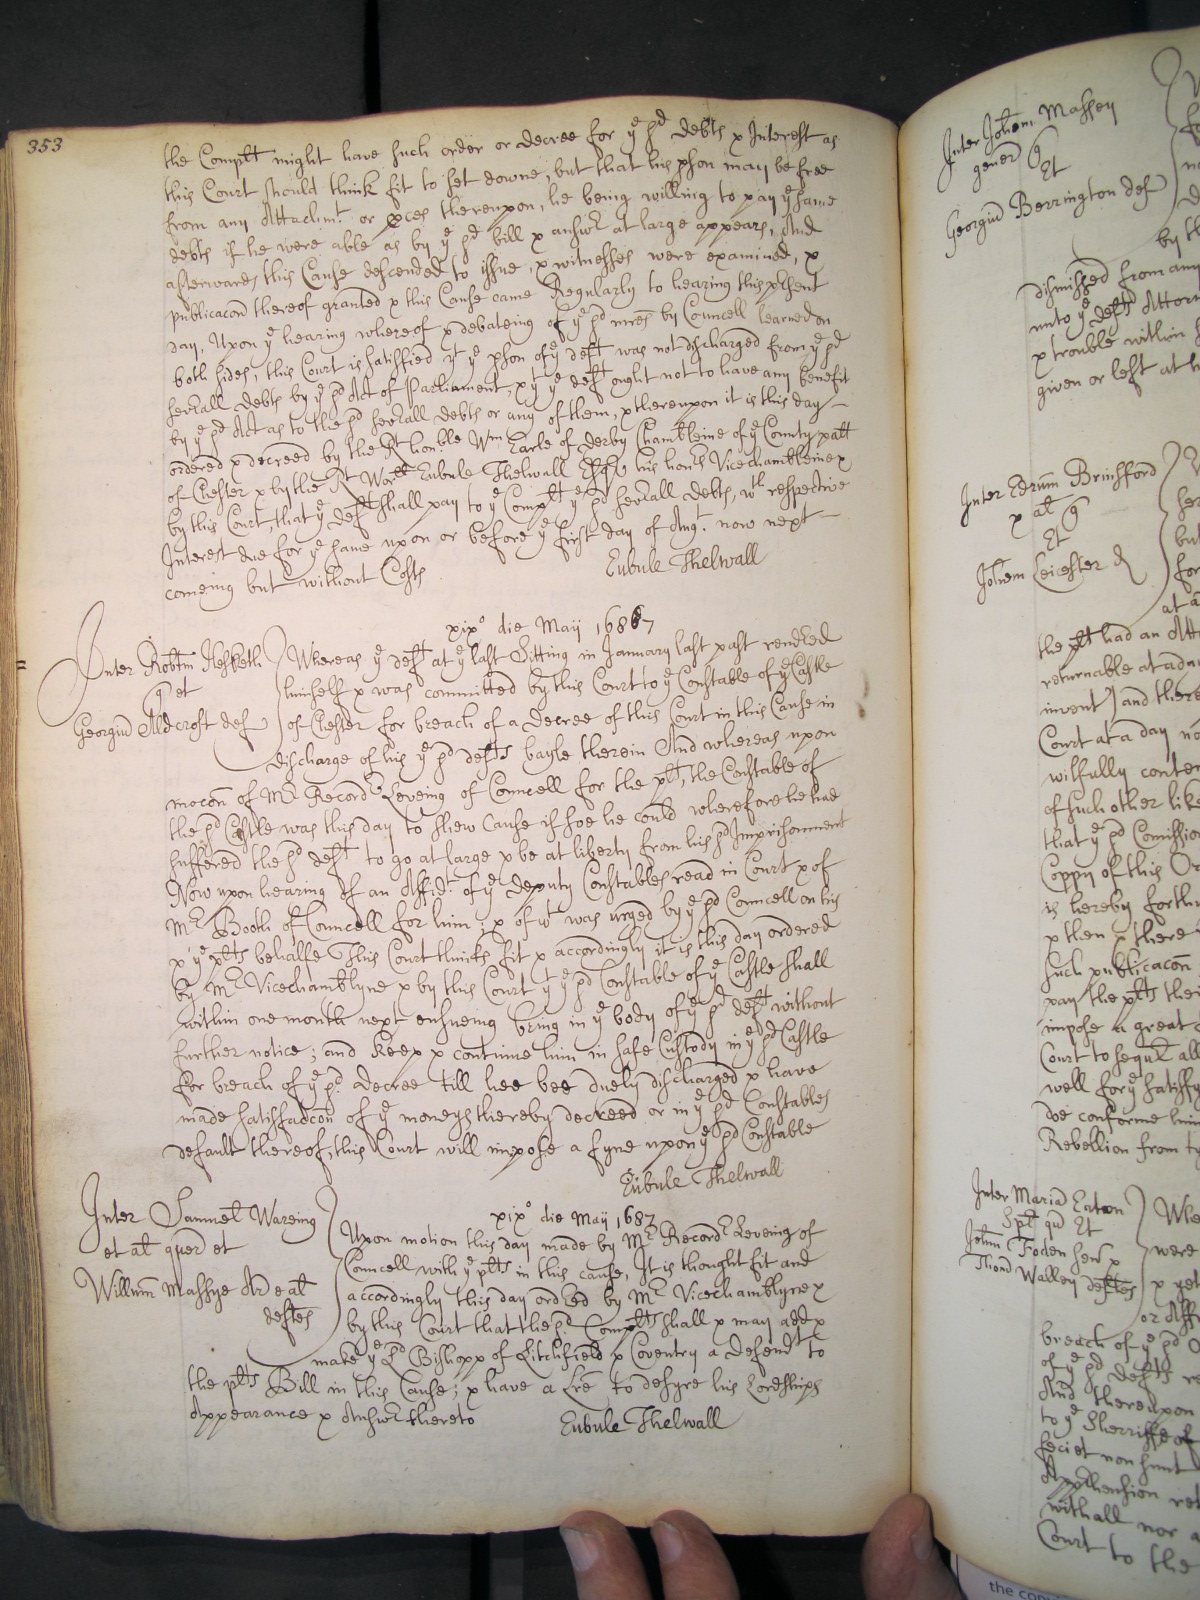 353
the Complt might have such order or decree for ye sd debts x Interest as
this Court should think fit to set downe, but that his pson may be free
from any Attachmt. or pces thereupon, he being willing to pay ye same
debts if he were able as by ye sd bill x answr at large appears, And
afterwards this Cause descended to issue, x witnesses were examined, x
publicacon thereof granted x this Cause came Regularly to hearing this psent
day, Upon ye hearing whereof x debateing of ye sd mres by Councell learned on
both sides, this Court is satisfied yt ye pson of ye deft was not discharged from ye sd
severall debts by ye sd Act of Parliament, x yt ye deft ought not to have any benefit
by ye sd Act as to the sd severall debts or any of them, x thereupon it is this day
ordered x decreed by the Rt Honble Wm Earle of Derby Chamblaine of ye County palt
of Chester x by the Rt Worll Eubule Thelwall Esqr his honrs Vicechamblaine x
by this Court, that ye deft shall pay to ye Complt ye sd severall debts, wth respective
Interest due for ye same upon or before ye first day of Augt. now next
comeing but without Costs
Eubule Thelwall
xixo die Maij 1687
Inter Robtm Hesketh
q et
Georgiu Aldcroft def
Whereas ye deft at ye last Sitting in January last past rendred
himself x was committed by this Court to ye Constable of ye Castle
of Chester for breach of a decree of this Court in this Cause in
discharge of his ye sd defts bayle therein And whereas upon
mocon of Mr Recordr Leveing of Councell for the plt, the Constable of
the sd Castle was this day to shew Cause if soe he could wherefore he had
suffered the sd deft to go at large x be at liberty from his sd Imprisonment
Now upon hearing of an Affidt. of ye deputy Constables read in Court x of
Mr Booth of Councell for him; x of wt was urged by ye sd Councell on his
x ye plts behalfe This Court thinks fit x accordingly it is this day ordered
by Mr Vicechamblyne x by this Court yt ye sd Constable of ye Castle shall
within one month next ensueing bring in ye body of ye sd deft without
further notice; and keep x continue him in safe Custody in ye sd Castle
for breach of ye sd. decree till hee bee duely discharged x have
made satisfaccon of ye moneys thereby decreed or in ye sd Constables
default thereof, this Court will impose a fyne upon ye sd Constable
Eubule Thelwall
xixo die Maij 1687
Inter Samuel Wareing
et al quer et
Willum Massye Ar e al
deftes
Upon motion this day made by Mr Recordr Leveing of
Councell with ye plts in this cause, It is thought fit and
accordingly this day ordred by Mr Vicechamblyne x
by this Court that the sd. Complts shall x may add x
make ye Ld Bishopp of Litchfield x Coventry a defendt to
the plts Bill in this Cause; x have a Lre to desyre his Lordships
Appearance x Answr thereto
Eubule Thelwall
Inter Johem Massey
gener q
Et
Georgiu Berrington def
by th
dismissed from any
unto ye defts Attor
x trouble within
given or left at h
Inter Edrum Brinsford
x al q
Et
Johem Leicester
at a
the plt had an Att
returnable at a day
invent) and there
Court at a day no
wilfully conte
of such other like
that ye sd Comission
Coppy of this Or
is hereby forth
x then x there
such publicacon
pay the plts thei
impose a great
Court to sequr all
well for ye satisfy
doe conforme him
Rebellion from ty
Inter Maria Eaton
Spl qu Et
Johm Foden senr x
Thom Walley deftes
Whe
were
x yet
or Aff
breach of ye sd O
of ye sd defts re
And thereupon
to ye Sherriffe of
feciet non sunt
Apprehension ret
withall nor a
Court to the
the cop